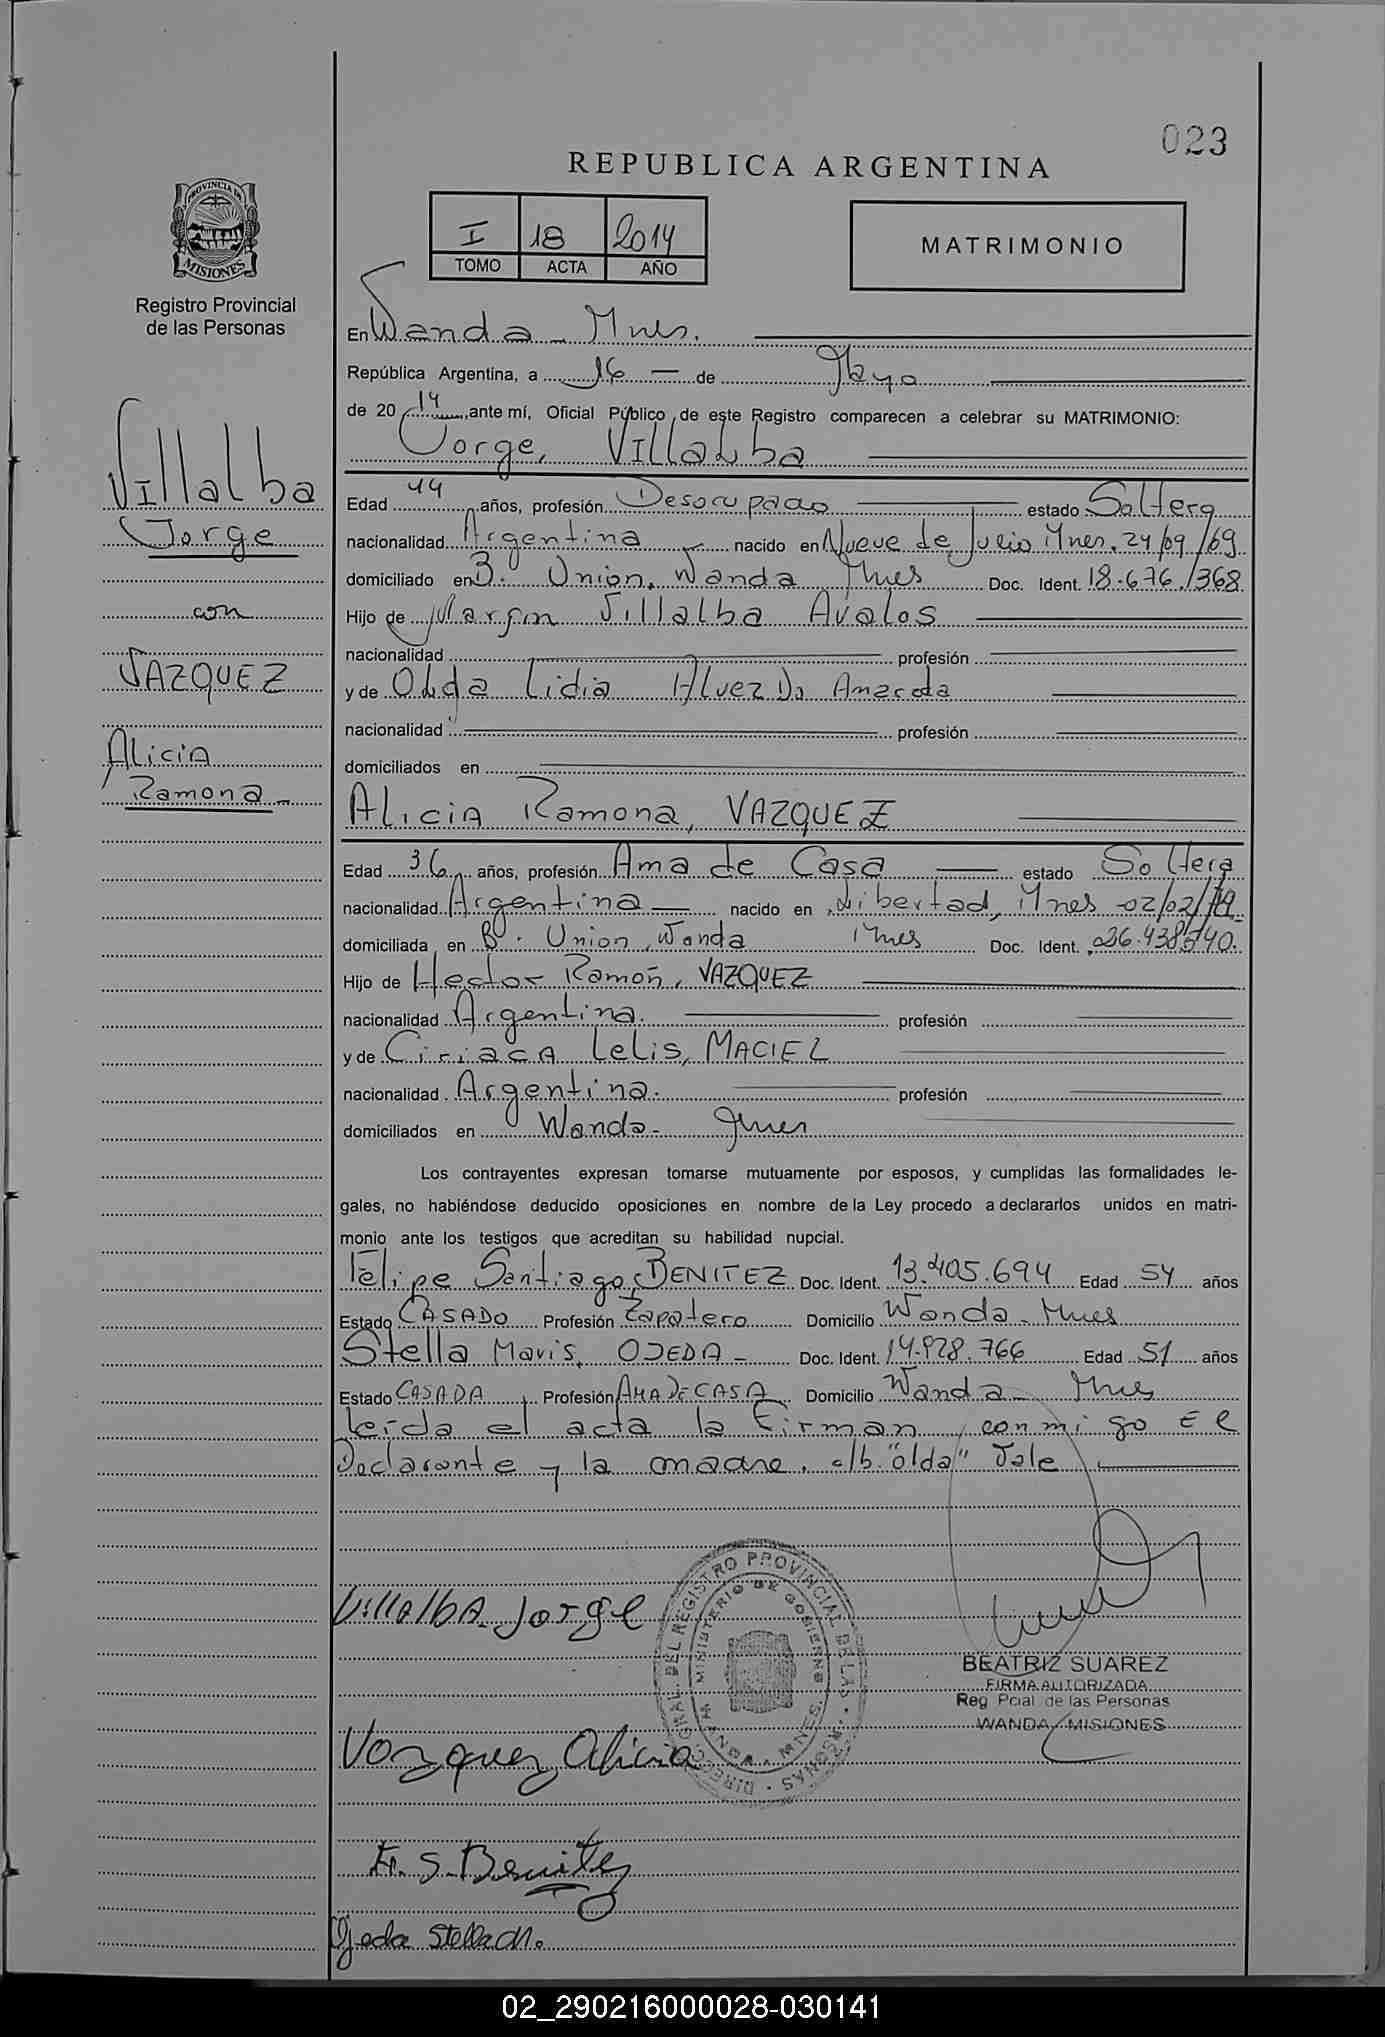 023
REPUBLICA ARGENTINA
PROVINCIA DE
MISIONES
Registro Provincial
de las Personas
I 18 2014
TOMO ACTA AÑO
MATRIMONIO
En Wanda - Mnes.
República Argentina, a 16 — de Mayo
de 20 14, ante mí, Oficial Público de este Registro comparecen a celebrar su MATRIMONIO:
Jorge, VILLALba
Villalba
Jorge
con
VAZQUEZ
Alicia
Ramona -
Edad 44 años, profesión Desocupado estado Soltero
nacionalidad Argentina nacido en Nueve de Julio Mnes. 24/09/69
domiciliado en B. Union, Wanda Mnes Doc. Ident. 18.676.368
Hijo de Villalba Avalos
nacionalidad profesión
y de OLda Lidia Alvez Do Amarada
nacionalidad profesión
domiciliados en
Alicia Ramona, VAZQUEZ
Edad 36 años, profesión Ama de Casa estado Soltera
nacionalidad Argentina nacido en Libertad, Mnes 02/02/
domiciliada en Bº. Union, Wanda Mnes Doc. Ident.
Hijo de Hector Ramón, VAZQUEZ
nacionalidad Argentina. profesión
y de Ciriaca Lelis, MACIEL
nacionalidad Argentina. profesión
domiciliados en Wanda - Mnes
Los contrayentes expresan tomarse mutuamente por esposos, y cumplidas las formalidades le-
gales, no habiéndose deducido oposiciones en nombre de la Ley procedo a declararlos unidos en matri-
monio ante los testigos que acreditan su habilidad nupcial.
Felipe Santiago, BENITEZ Doc. Ident. 13.405.694 Edad 54 años
Estado CASADO Profesión Zapatero Domicilio Wanda - Mnes
Stella Maris, OJEDA - Doc. Ident. 14.928.766 Edad 51 años
Estado CASADA Profesión AMA DE CASA Domicilio Wanda - Mnes
Leida el acta la Firman conmigo El
Declarante y la madre. e/b. "olda" Vale
Villalba Jorge
DIRECC. GRAL. DEL REGISTRO PROVINCIAL DE LAS PERSONAS
MINISTERIO DE GOBIERNO
WANDA - MNES.
BEATRIZ SUAREZ
FIRMA AUTORIZADA
Reg. Pcial. de las Personas
WANDA - MISIONES
Vazquez Alicia
F. S. Benitez
Ojeda Stella M.
02_290216000028-030141